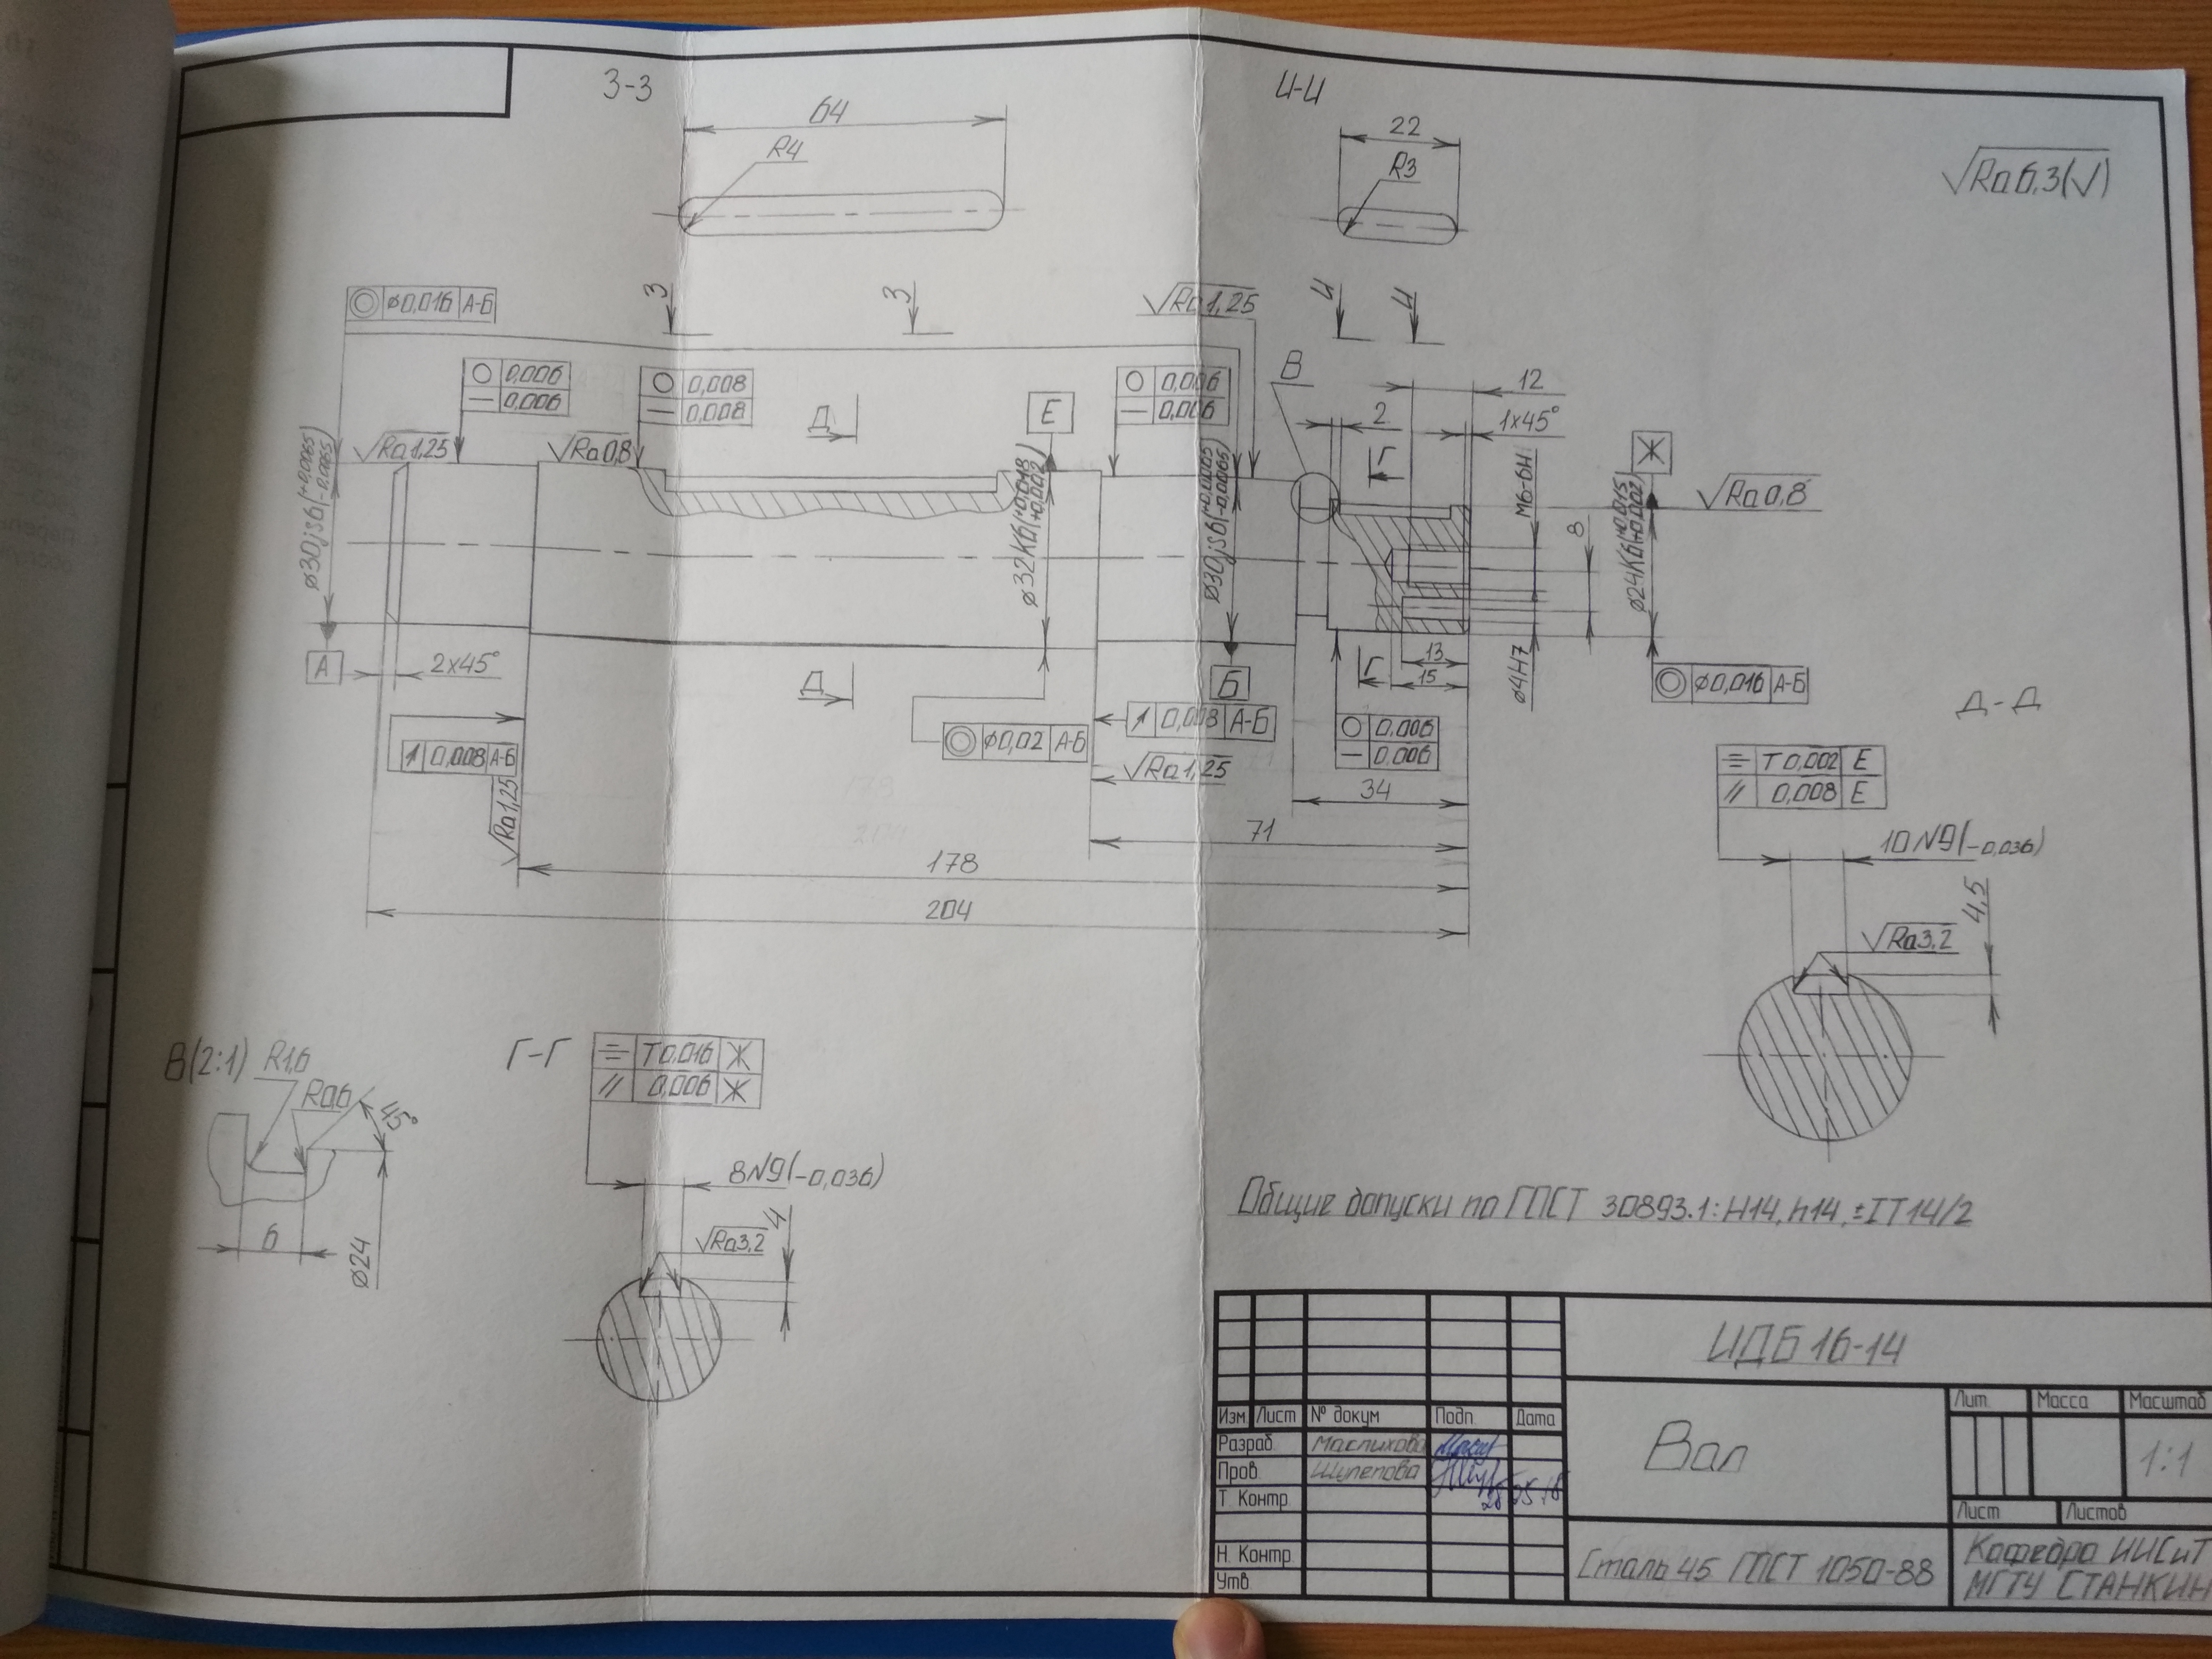 З-З
И-И
64
22
R4
R3
√Ra6,3(√)
⌀0,016 А-Б
З
З
√Ra1,25
И
И
0,006
0,006
0,008
0,008
Д
Е
0,006
0,006
В
12
2
1x45°
Г
Ж
√Ra1,25
√Ra0,8
√Ra0,8
⌀30js6(+0,0065 -0,0065)
⌀32K6(+0,018 +0,002)
⌀30js6(+0,0065 -0,0065)
M6-6H
8
⌀24K6(+0,015 +0,002)
А
2x45°
Д
Б
Г
13
15
⌀4H7
⌀0,016 А-Б
0,008 А-Б
⌀0,02 А-Б
0,008 А-Б
√Ra1,25
√Ra1,25
0,006
0,006
34
71
178
204
Д-Д
T 0,002 Е
// 0,008 Е
10N9(-0,036)
4,5
√Ra3,2
В(2:1)
R1,6
R0,6
45°
6
⌀24
Г-Г
T 0,016 Ж
// 0,006 Ж
8N9(-0,036)
4
√Ra3,2
Общие допуски по ГОСТ 30893.1: H14, h14, ±IT14/2
ИДБ 16-14
Изм. Лист № докум Подп. Дата
Разраб. Маслихова
Пров. Шулепова
Т. Контр.
Н. Контр.
Утв.
Вал
Лит. Масса Масштаб
1:1
Лист Листов
Сталь 45 ГОСТ 1050-88
Кафедра ИИСиТ
МГТУ СТАНКИН